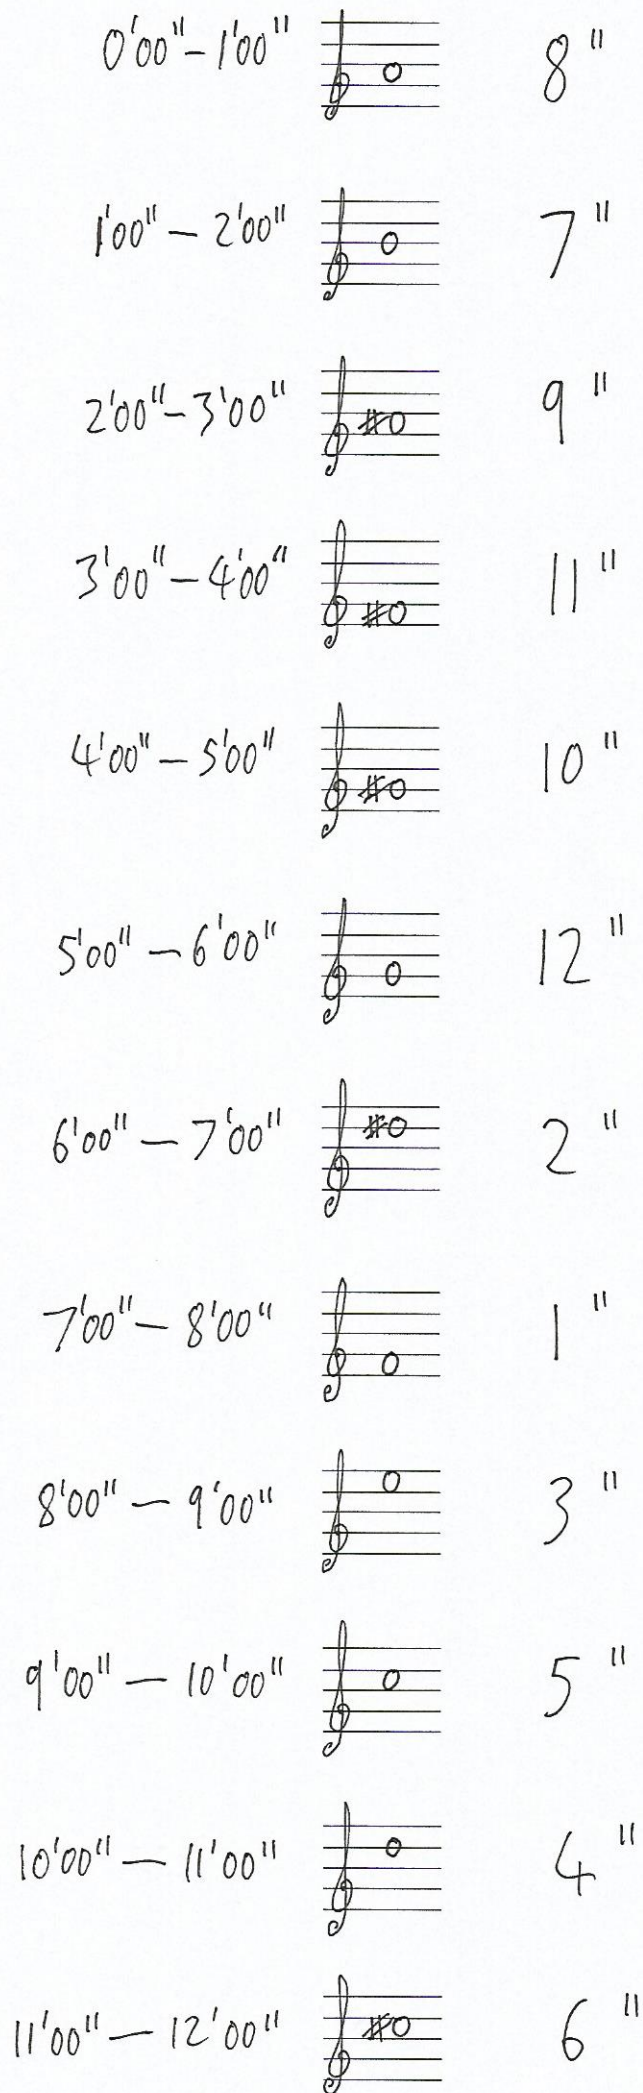 0'00" – 1'00" 8"
1'00" – 2'00" 7"
2'00" – 3'00" 9"
3'00" – 4'00" 11"
4'00" – 5'00" 10"
5'00" – 6'00" 12"
6'00" – 7'00" 2"
7'00" – 8'00" 1"
8'00" – 9'00" 3"
9'00" – 10'00" 5"
10'00" – 11'00" 4"
11'00" – 12'00" 6"